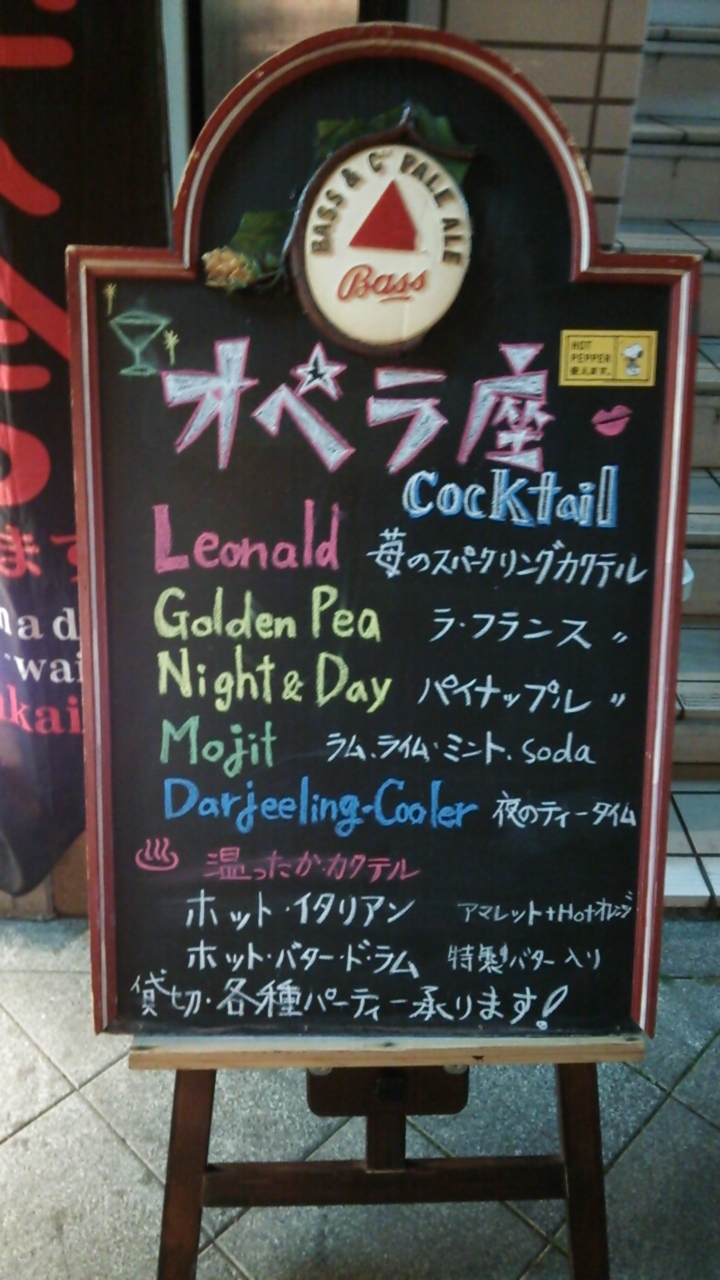 BASS & Co PALE ALE
Bass
HOT
PEPPER
使えます。
オペラ座
Cocktail
Leonald 苺のスパークリングカクテル
Golden Pea ラ・フランス 〃
Night & Day パイナップル 〃
Mojit ラム、ライム・ミント、soda
Darjeeling-Cooler 夜のティータイム
温ったか・カクテル
ホット・イタリアン アマレット+Hotオレンジ
ホット・バター・ド・ラム 特製バター入り
貸切・各種パーティー承ります!
ます
nad
wai
kai